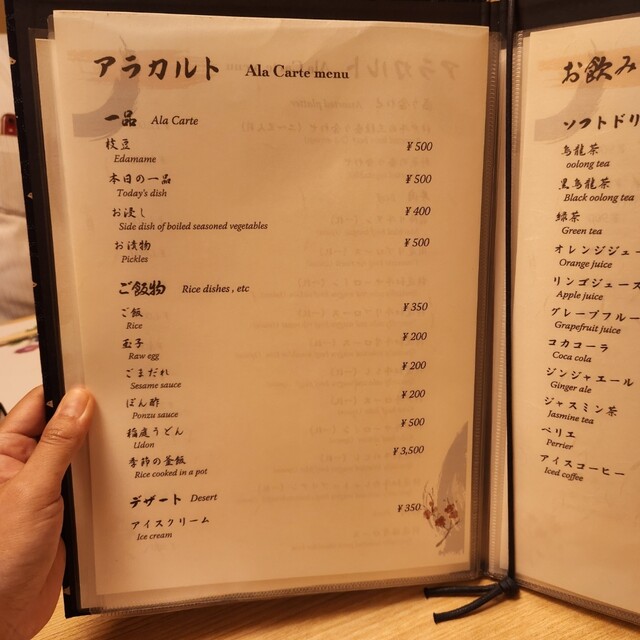 アラカルト Ala Carte menu
一品 Ala Carte
枝豆 ¥500
Edamame
本日の一品 ¥500
Today's dish
お浸し ¥400
Side dish of boiled seasoned vegetables
お漬物 ¥500
Pickles
ご飯物 Rice dishes , etc
ご飯 ¥350
Rice
玉子 ¥200
Raw egg
ごまだれ ¥200
Sesame sauce
ぽん酢 ¥200
Ponzu sauce
稲庭うどん ¥500
Udon
季節の釜飯 ¥3,500
Rice cooked in a pot
デザート Desert
アイスクリーム ¥350
Ice cream
お飲み
ソフトドリ
烏龍茶
oolong tea
黒烏龍茶
Black oolong tea
緑茶
Green tea
オレンジジュー
Orange juice
リンゴジュース
Apple juice
グレープフルー
Grapefruit juice
コカコーラ
Coca cola
ジンジャエール
Ginger ale
ジャスミン茶
Jasmine tea
ペリエ
Perrier
アイスコーヒー
Iced coffee